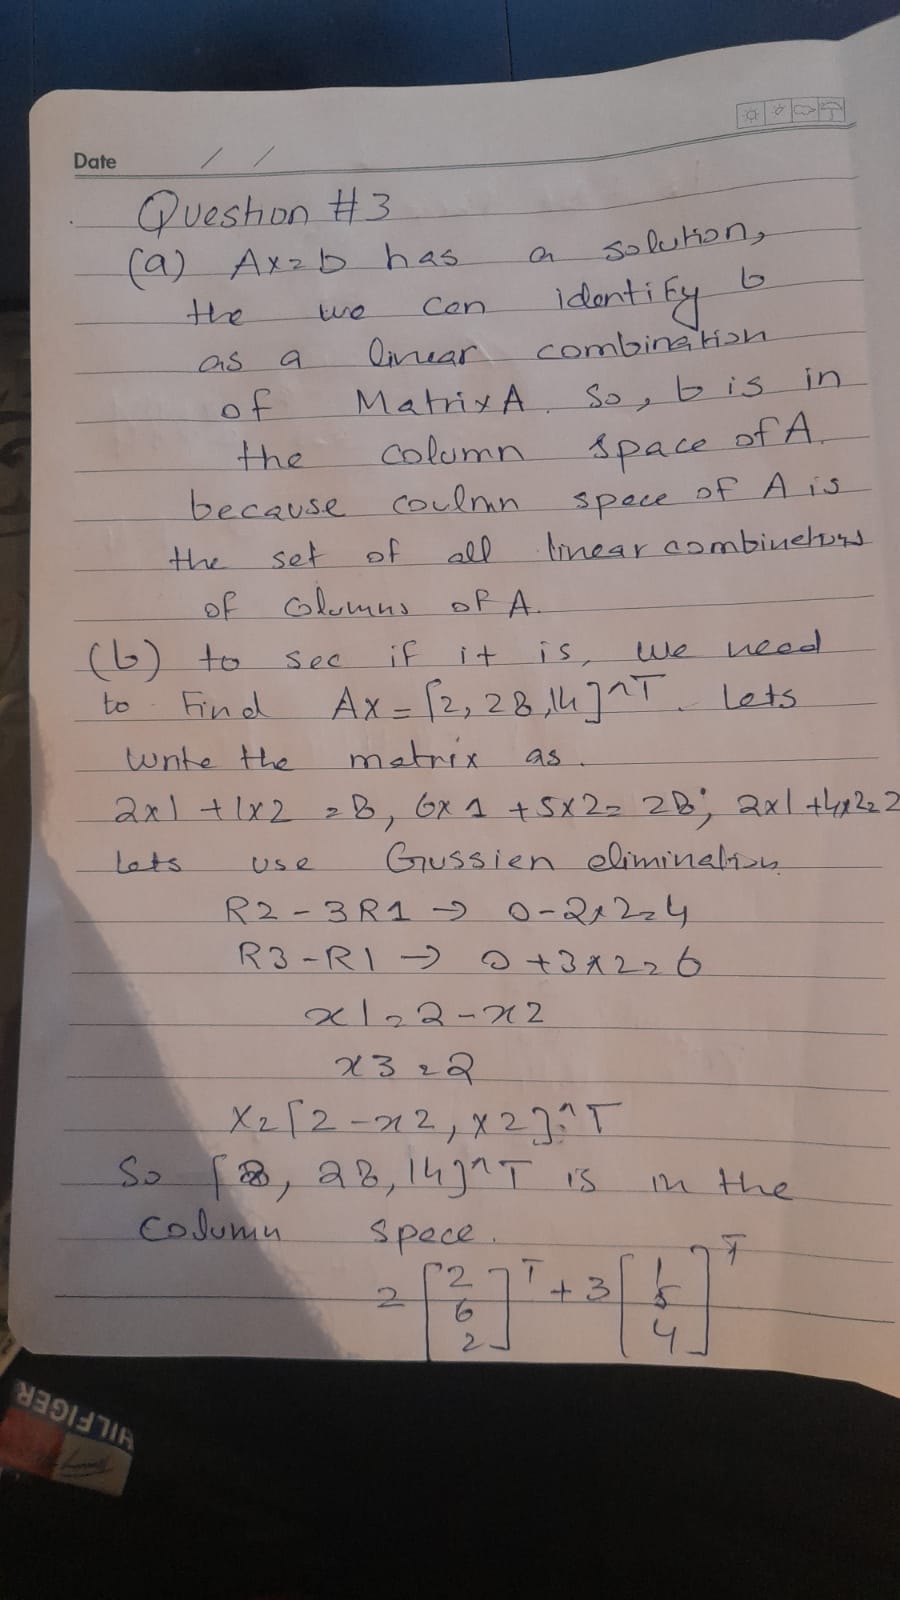 Date / /
Question #3
(a) Ax=b has a solution,
the we can identify b
as a linear combination
of Matrix A. So, b is in
the column space of A.
because coulmn space of A is
the set of all linear combinetions
of Columns of A.
(b) to see if it is, we need
to Find Ax=[2, 28, 14]^T. Lets
write the matrix as.
2x1 + 1x2 = 8, 6x1 + 5x2= 28; 2x1+4x2=2
Lets use Gussien elimination
R2-3R1 → 0-2x2=4
R3-R1 → 0+3x2=6
x1=2-x2
x3=2
X=[2-x2, x2]^T
So [8, 28, 14]^T is in the
Column Spece.
2[2 6 2]^T + 3[1 5 4]^T
HILFIGER